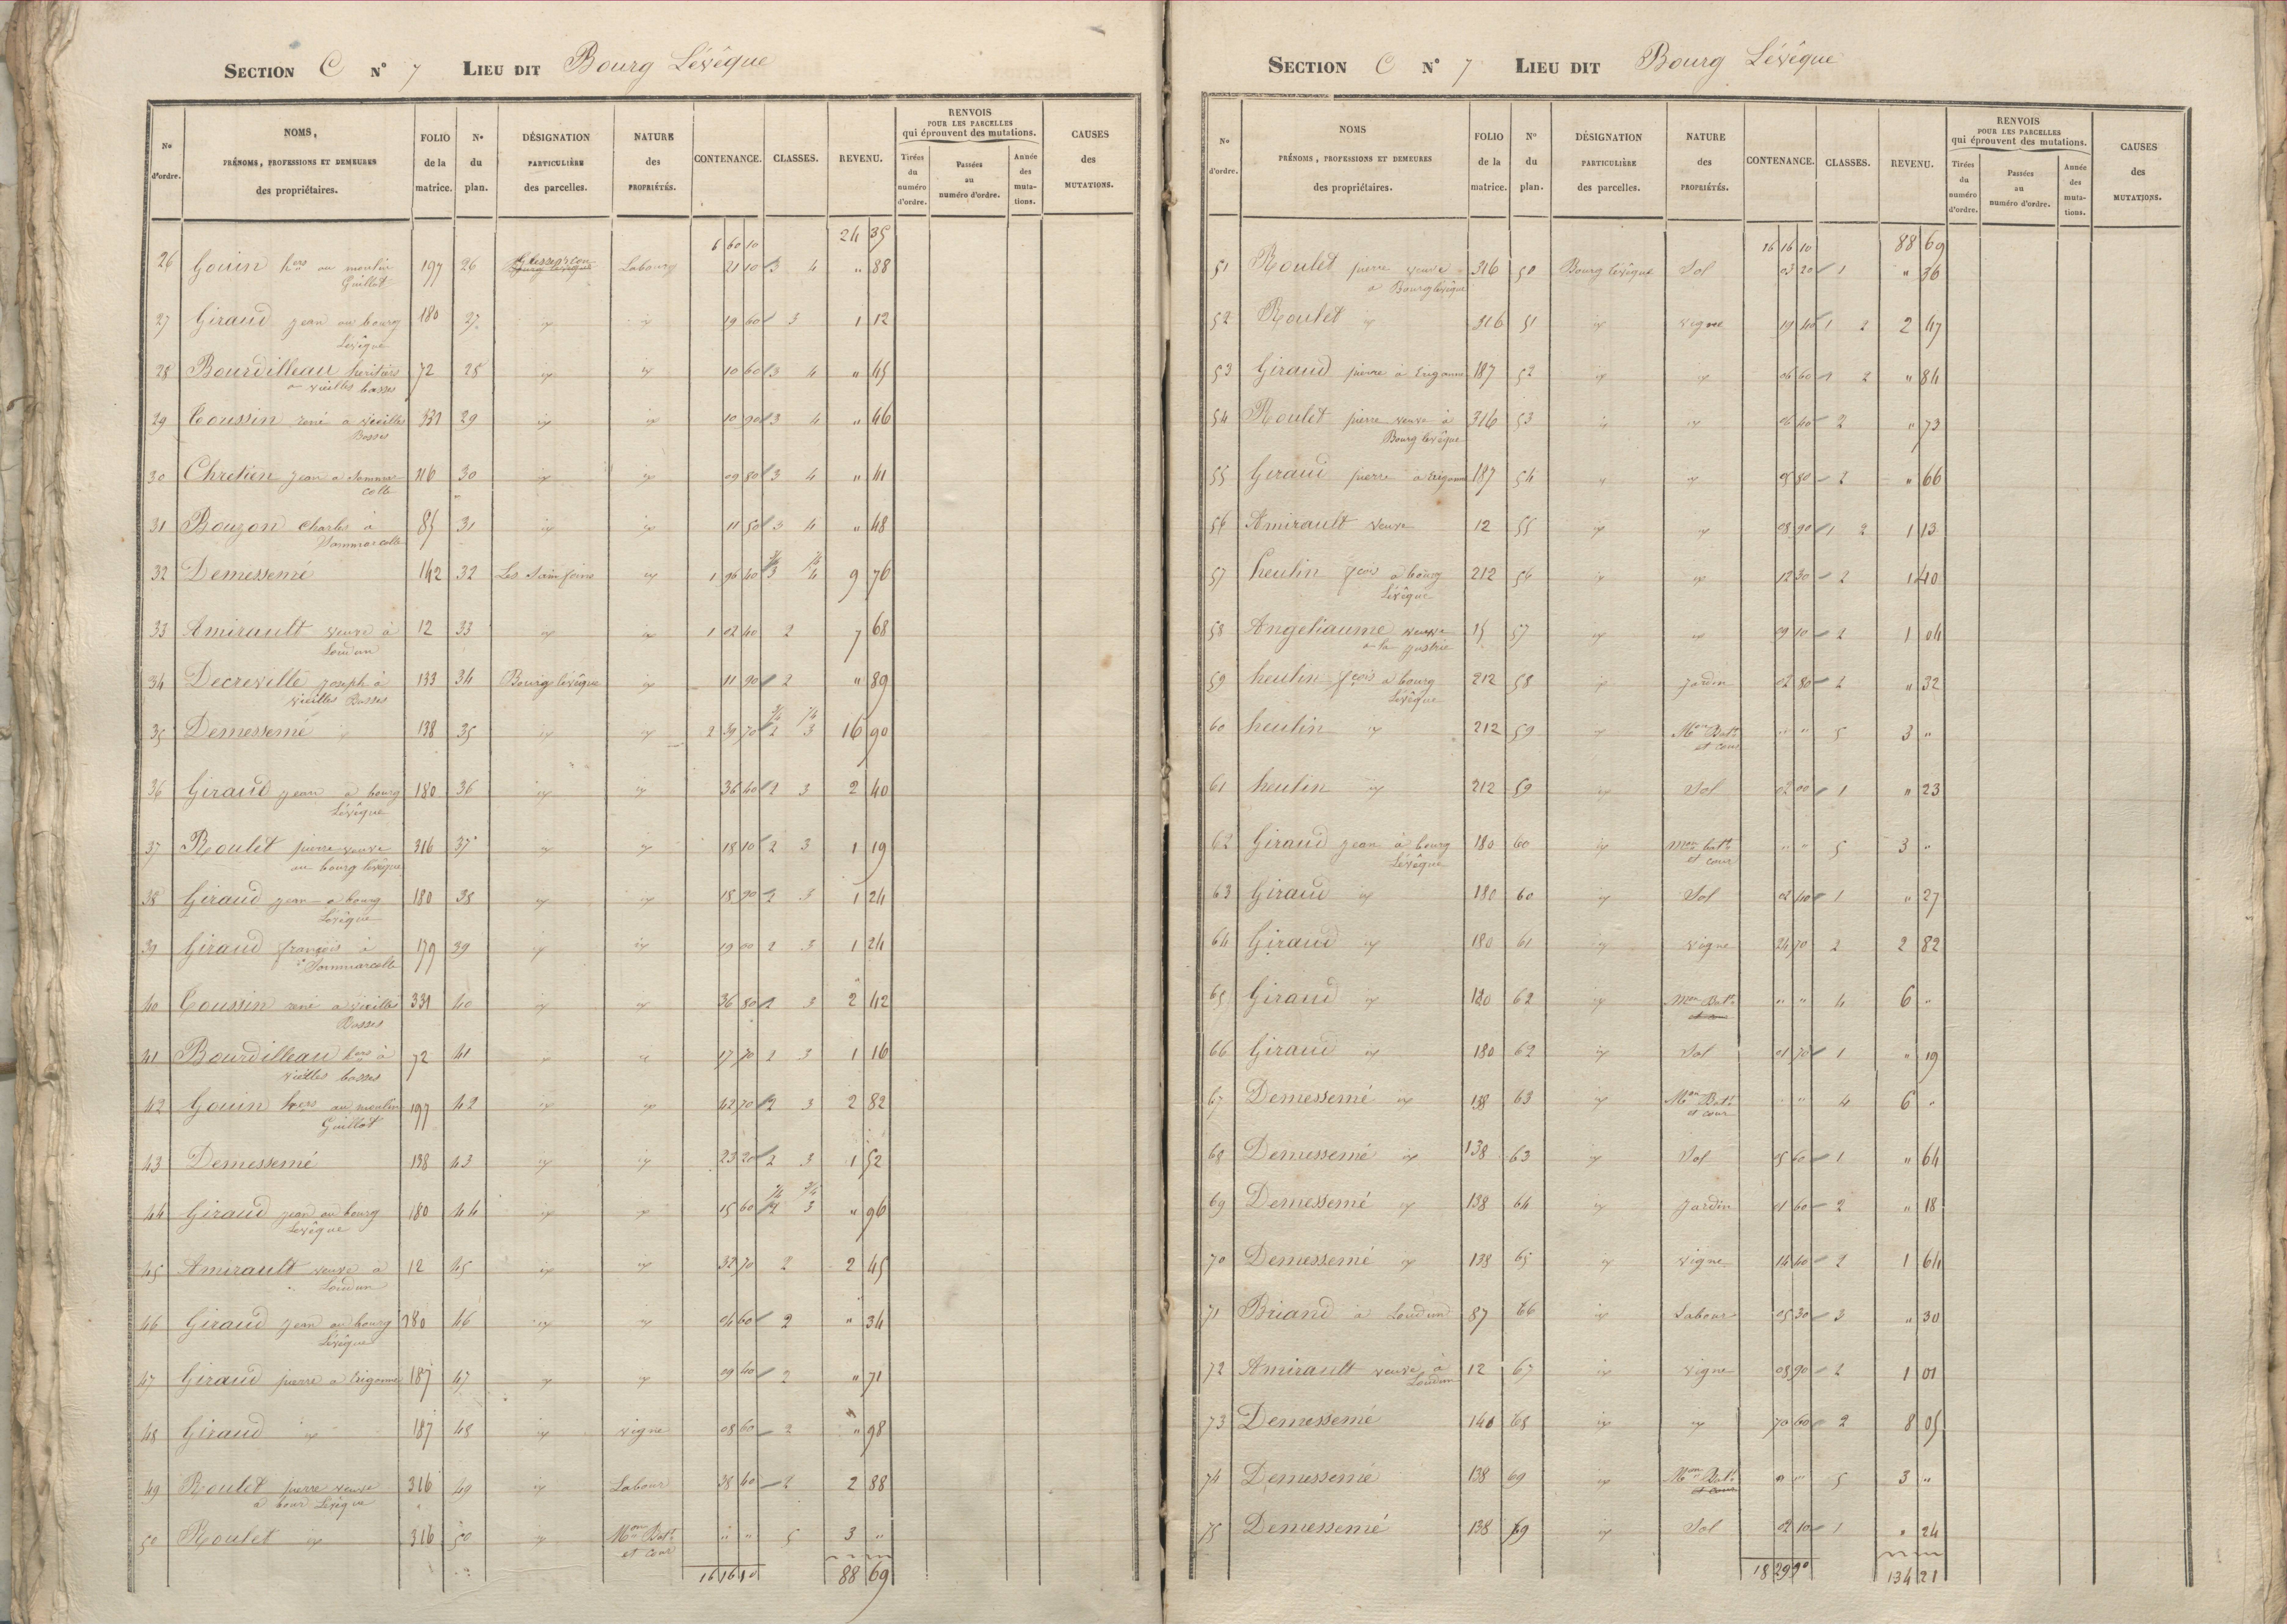 SECTION C N° 7 LIEU DIT Bourg Lévêque
N° d'ordre. NOMS, PRÉNOMS, PROFESSIONS ET DEMEURES des propriétaires. FOLIO de la matrice. N° du plan. DÉSIGNATION PARTICULIÈRE des parcelles. NATURE des PROPRIÉTÉS. CONTENANCE. CLASSES. REVENU. RENVOIS POUR LES PARCELLES qui éprouvent des mutations. Tirées du numéro d'ordre. Passées au numéro d'ordre. Année des mutations. CAUSES des MUTATIONS.
6 60 10 24 35
26 Gouin hers au moulin 197 26 Labour 21 10 3 4 " 88
Guillot
27 Giraud jean au bourg 180 27 19 60 3 1 12
Lévêque
28 Bourdilleau heritiers 72 28 10 60 3 4 " 45
a vieilles basses
29 Coussin rené à vieilles 331 29 10 90 3 4 " 46
Basses
30 Chretien jean a Sammar 116 30 09 80 3 4 " 41
colle
31 Bouzon Charles à 85 31 11 50 3 4 " 48
Sammarcolle
32 Demessemé 142 32 Les Sainfoins 1 96 40 3 4 9 76
33 Amirault veuve à 12 33 1 02 40 2 7 68
Loudun
34 Decreville joseph à 133 34 Bourg lévêque 11 90 2 " 89
vieilles Basses
35 Demessemé 138 35 2 39 70 2 3 16 90
36 Giraud jean a bourg 180 36 36 40 2 3 2 40
Lévêque
37 Roulet pierre veuve 316 37 18 10 2 3 1 19
au bourg lévêque
38 Giraud jean a bourg 180 38 18 90 2 3 1 24
Lévêque
39 Giraud françois à 179 39 19 00 2 3 1 24
Sammarcolle
40 Coussin rené a vieilles 331 40 36 80 2 3 2 42
Basses
41 Bourdilleau hers à 72 41 17 70 2 3 1 16
vieilles basses
42 Gouin hers au moulin 197 42 42 70 2 3 2 82
Guillot
43 Demessemé 138 43 23 20 2 3 1 52
44 Giraud jean au bourg 180 44 15 60 2 3 " 96
Levêque
45 Amirault veuve à 12 45 32 70 2 2 45
Loudun
46 Giraud jean au bourg 180 46 04 60 2 " 34
Lévêque
47 Giraud pierre a 187 47 09 40 2 " 71
48 Giraud 187 48 vigne 08 60 2 " 98
49 Roulet pierre veuve 316 49 Labour 38 40 2 2 88
a bour Lévêque
50 Roulet 316 50 Mon Batt " " 5 3 "
et cour
16 16 10 88 69
SECTION C N° 7 LIEU DIT Bourg Lévêque
N° d'ordre. NOMS PRÉNOMS, PROFESSIONS ET DEMEURES des propriétaires. FOLIO de la matrice. N° du plan. DÉSIGNATION PARTICULIÈRE des parcelles. NATURE des PROPRIÉTÉS. CONTENANCE. CLASSES. REVENU. RENVOIS POUR LES PARCELLES qui éprouvent des mutations. Tirées du numéro d'ordre. Passées au numéro d'ordre. Année des mutations. CAUSES des MUTATIONS.
16 16 10 88 69
51 Roulet pierre veuve 316 50 Bourg lévêque Sol 03 20 1 " 36
a Bourg lévêque
52 Roulet 316 51 vigne 19 40 1 2 2 47
53 Giraud pierre à 187 52 06 60 1 2 " 84
54 Roulet pierre veuve à 316 53 06 40 2 " 73
Bourg levêque
55 Giraud pierre a 187 54 05 80 2 " 66
56 Amirault veuve 12 55 08 90 1 2 1 13
57 heulin fçois a bourg 212 56 12 30 2 1 40
Lévêque
58 Angeliaume veuve 15 57 09 10 2 1 04
a la
59 heulin fçois a bourg 212 58 Jardin 02 80 2 " 32
Lévêque
60 heulin 212 59 Mon Batt " " 5 3 "
et cour
61 heulin 212 59 Sol 02 00 1 " 23
62 Giraud jean à bourg 180 60 Mon batt " " 5 3 "
Lévêque et cour
63 Giraud 180 60 Sol 02 40 1 " 27
64 Giraud 180 61 vigne 24 70 2 2 82
65 Giraud 180 62 Mon Batt " " 4 6 "
66 Giraud 180 62 Sol 01 70 1 " 19
67 Demessemé 138 63 Mon Batt " " 4 6 "
et cour
68 Demessemé 138 63 Sol 05 60 1 " 64
69 Demessemé 138 64 Jardin 01 60 2 " 18
70 Demessemé 138 65 vigne 14 40 2 1 64
71 Briand à Loudun 87 66 Labour 05 30 3 " 30
72 Amirault veuve à 12 67 vigne 08 90 2 1 01
Loudun
73 Demessemé 140 68 70 60 2 8 05
74 Demessemé 138 69 Mon Batt " " 5 3 "
et cour
75 Demessemé 138 69 Sol 02 10 1 " 24
18 29 90 134 21